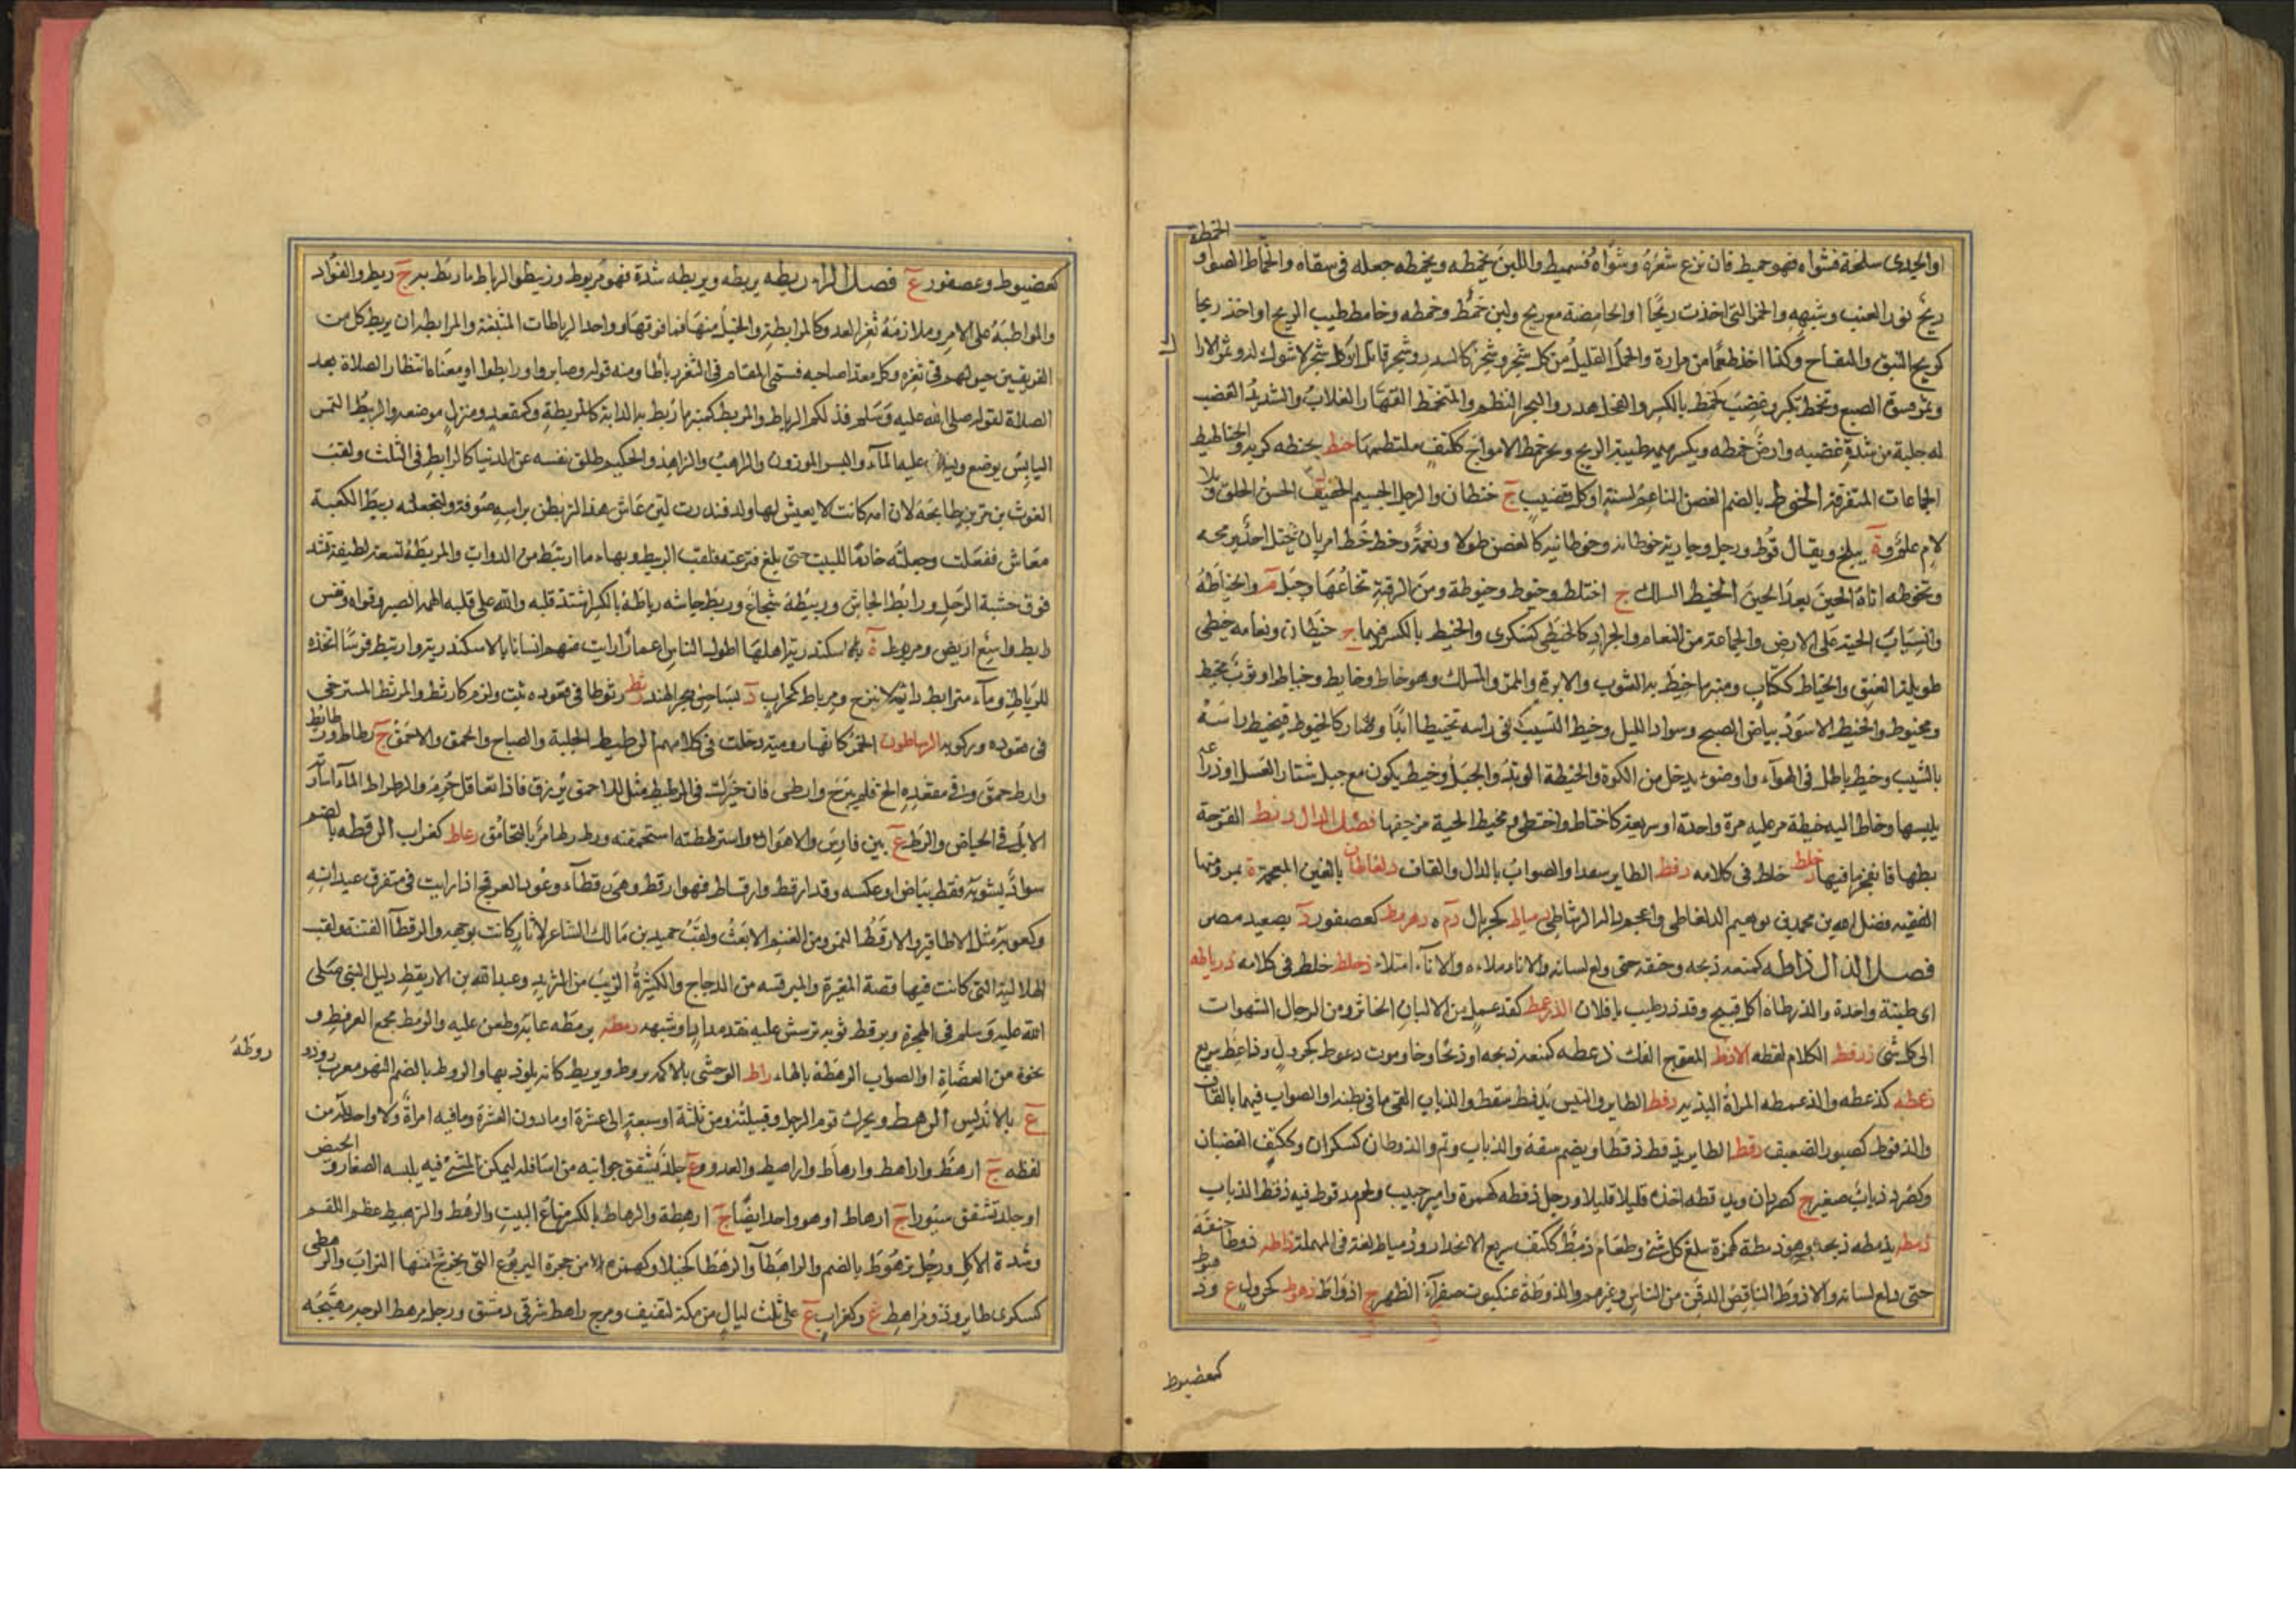 الخمطة
او الجدى سلخة فشواه فهو خميط فان نزع شعره وشواه فسميط واللبن يخمطه ويخمطه جعله فى سقاه والخماط الشواو
ريح نور العنب وشبهه والخمر التى اخذت ريحا او الحامضة مع ريح ولبن خمط وخمطه وخامط طيب الريح او اخذ ريحا
كريح النبق والتفاح وكذا اخذ طعما من مرارة والحمل القليل من كل شجر وشجر كالسدر وشجر قاتل او كل شجر لا شوك له وثمر الارا
وثمر فسوة الضبع وتخمط تكبر وغضب كخمط بالكسر والفحل هدر والبحر التطم والمتخمط القهار الغلاب والشديد الغضب
له جلبة من شدة غضبه وارض خمطه ويكسر ميمه طيبة الريح وبحر خمط الامواج ككتف ملتطمها حنط يحنطه كربه والحناطيط
الجماعات المتفرقة الخوط بالضم الغصن الناعم لسنته او كل قضيب ج خيطان والرجل الجسيم الخفيف الحسن الخلق وبلا
لام علم وة ببلخ ويقال قوط ورجل وجارية خوطانة وخوطانية كالغصن طولا ونعمة وخط خط امر بان يختل احدا برمحه
وتخوطه اتاه الحين بعد الحين الخيط السلك ج اخياط وخيوط وخيوطة ومن الرقبة نخاعها وجبل م والخياطة
وانسياب الحية على الارض والجماعة من النعام والجراد كالخيطى كسكرى والخيط بالكسر فيهما ج خيطان ونعامة خيطى
طويلة العنق والخياط ككتاب ومنبر ما خيط به الثوب والابرة والممر والمسلك وهو خاط وخايط وخياط او ثوب مخيط
ومخيوط والخيط الاسود بياض الصبح وسواد الليل وخيط الشيب فى راسه تخييطا بدا وصار كالخيوط فتخيط راسه
بالشيب وخيط باطل فى الهواء او ضوء يدخل من الكوة والخيطة الوتد والحبل وخيط يكون مع حبل مشتار العسل او دراعة
يلبسها وخاط اليه خيطة مر عليه مرة واحدة او سريعة كاختاط واختطى ومخيط الحية مزحفها فصل الدال دثط القرحة
بطها فانفجر ما فيها دحلط خلط فى كلامه دفط الطاير سفدا والصواب بالذال والقاف دلغاطان بالغين المعجمة ة بمرو منها
الفقيه فضل الله بن محمد بن ابرهيم الدلغاطى واعجم دالها الرشاطى دمياط كجريال د م دهرمط كعصفور د بصعيد مصر
فصل الذال ذاطه كمنعه ذبحه وخنقه حتى دلع لسانه والاناء ملاءه والاناء امتلاء ذحلط خلط فى كلامه ذرياطه
اى طينة واحدة والذرطاة اكل قبيح وقد ذرطيت يا فلان الذرعمط كقذعمل من الالبان الخاثر ومن الرجال الشهوان
الى كل شئ ذرقط الكلام لفظه الاذط المعوج الفك ذعطه كمنعه ذبحه او ذبحا وحا وموت ذعوط كجرول وذاعط سريع
ذعمطه كذعطه والذعمطه المراة البذية ذفط الطاير والتيس يذفط سفد والذباب القى ما فى بطنه او الصواب فيهما بالقاف
والذفوط كصبور الضعيف ذقط الطاير يذقط ذقطا ويضم سفد والذباب ونم والذقطان كسكران وككتف الغضبان
وكصرد ذباب صغير ج كصردان وتذقطه اخذه قليلا قليلا ورجل ذقطه كهمزة وامير خبيث ولحم مذقوط فيه ذقط الذباب
ذمطه يذمطه ذبحه وهو ذمطة كهمزة سلغ كل شئ وطعام ذمط ككتف سريع الانحدار وذمياط لغة فى المهملة ذاطه ذوطا خنقه
حتى دلع لسانه والاذوط الناقص الذقن من الناس وغيرهم والذوطة عنكبوت صفراء الظهر ج اذواط ذهوط كجرول ع وذهيوط
كعضيوط
كعضيوط وعصفور ع فصل الراء ربطه يربطه ويربطه شده فهو مربوط وربيط والرباط ما ربط به ج ربط والفؤاد
والمواظبة على الامر وملازمة ثغر العدو كالمرابطة والخيل منها فما فوقها وواحد الرباطات المبنية والمرابطة ان يربط كل من
الفريقين خيولهم فى ثغره وكل معد لصاحبه فسمى المقام فى الثغر رباطا ومنه قوله وصابروا ورابطوا او معناه انتظار الصلاة بعد
الصلاة لقوله صلى الله عليه وسلم فذلكم الرباط والمربط كمنبر ما ربط به الدابة كالمربطة وكمقعد ومنزل موضعه والربيط التمر
اليابس يوضع ويصب عليه الماء والبسر المودون والراهب والزاهد والحكيم ظلف نفسه عن الدنيا كالرابط فى الثلث ولقب
الغوث بن مر بن طابخة لان امه كانت لا يعيش لها ولد فنذرت لئن عاش هذا لتربطن براسه صوفة ولتجعلنه ربيط الكعبة
فعاش ففعلت وجعلته خادما للبيت حتى بلغ فنزعته فلقب الربيط وبهاء ما ارتبط من الدواب والمربطة نسعة لطيفة تشد
فوق حشية الرحل ورابط الجاش وربيطه شجاع وربط جاشه رباطة بالكسر اشتد قلبه والله على قلبه الهمه الصبر وقواه ونفس
رابط واسع اريض ومريوط ة باسكندرية اهلها اطول الناس اعمارا رايت منهم انسانا بالاسكندرية وارتبط فرسا اتخذه
للرباط وماء مترابط دائم لا ينزح ومرباط كمحراب د بساحل بحر الهند رثط رثوطا فى قعوده ثبت ولزم كارثط والمرثط المسترخى
فى قعوده وركوبه الرساطون الخمر كانها رومية دخلت فى كلامهم الرطيط الجلبة والصياح والحمق والاحمق ج رطاط ورطائط
وارط حمق وفى مقعده الح فلم يبرح وارطى فان خيرك فى الرطيط مثل للاحمق يرزق فاذا تعاقل حرم والرطراط الماء اسارته
الابل فى الحياض والرط ع بين فارس والاهواز واسترططته استحمقته ورط رط امر بالتحامق رعاط كغراب الرقطه بالضم
سواد يشوبه نقط بياض او عكسه وقد ارقط وارقاط فهو ارقط وهى رقطاء وعود العرفج اذا رايت فى متفرق عيدانه
وكعوبه مثل الاظافير والارقط النمر ومن الغنم الابغث ولقب حميد بن مالك الشاعر لاثار كانت بوجهه والرقطا الفتنة ولقب
الهلالية التى كانت فيها قصة المغيرة والمبرقشة من الدجاج والكثيرة الزيت من الثريد وعبد الله بن الاريقط دليل النبى صلى
الله عليه وسلم فى الهجرة وترقط ثوبه ترشش عليه نقط مداد او شبهه رمطه يرمطه عابه وطعن عليه والرمط مجمع العرفط و
نحوه من العضاة او الصواب الرهط بالهاء راط الوحشى بالاكمه يروط ويريط كانه يلوذ بها والروط بالضم النهر معرب رود
روطة
ع بالاندلس الرهط ويحرك قوم الرجل وقبيلته ومن ثلثة او سبعة الى عشرة او ما دون العشرة وما فيه امراة ولا واحد له من
لفظه ج ارهط واراهط وارهاط واراهيط والعدو وع وجلد يشقق جوانبه من اسافله ليمكن المشى فيه يلبسه الصغار والحيض
او جلد تشقق سيورا ج ارهاط او هو واحد ايضا ج ارهطة والرهاط بالكسر متاع البيت والرهط والترهيط عظم اللقم
وشدة الاكل ورجل ترهوط بالضم والراهطا والرهطا كخيلا وكهمزه من جحرة اليربوع التى يخرج منها التراب والرهطى
كسكرى طاير وذو مراهط ع وكغراب ع على ثلث ليال من مكة لثقيف ومرج راهط شرقى دمشق ورجل مرهط الوجه مهيجه